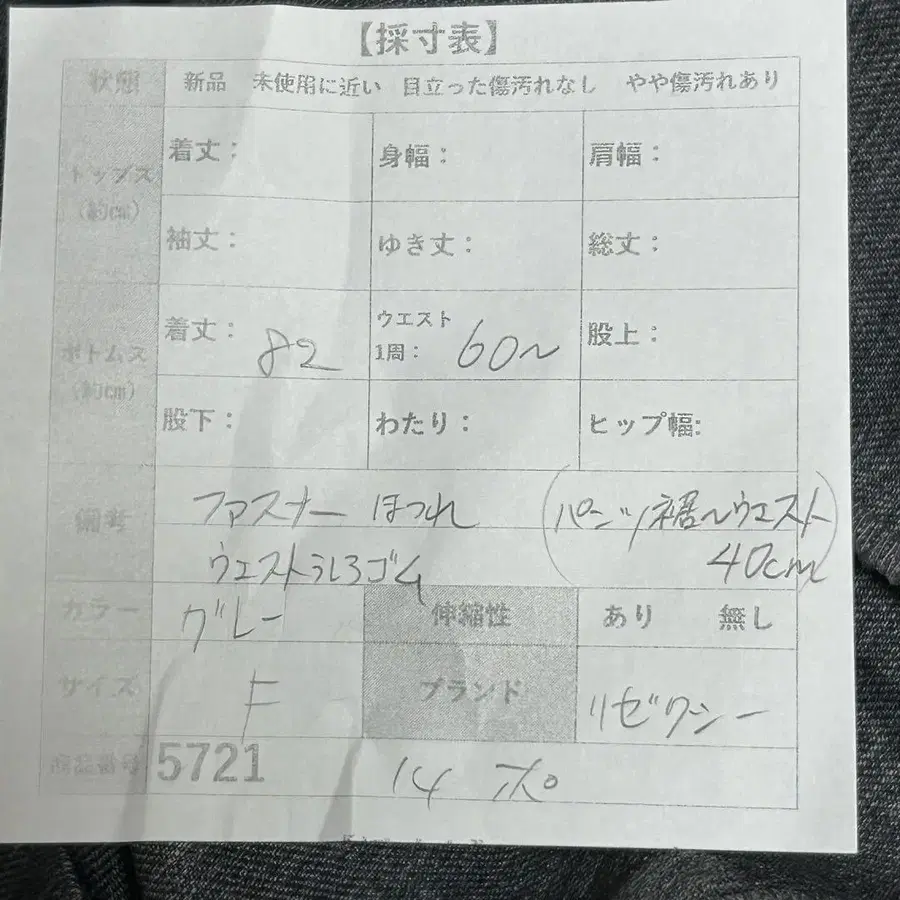 【採寸表】
状態 新品 未使用に近い 目立った傷汚れなし やや傷汚れあり
トップス (約cm)
着丈： 身幅： 肩幅：
袖丈： ゆき丈： 総丈：
ボトムス (約cm)
着丈： 82 ウエスト1周： 60～ 股上：
股下： わたり： ヒップ幅:
備考 ファスナー ほつれ (パンツ裾～ウエスト
ウエストうしろゴム 40cm)
カラー グレー 伸縮性 あり 無し
サイズ F ブランド リゼクシー
商品番号 5721 14 ポ